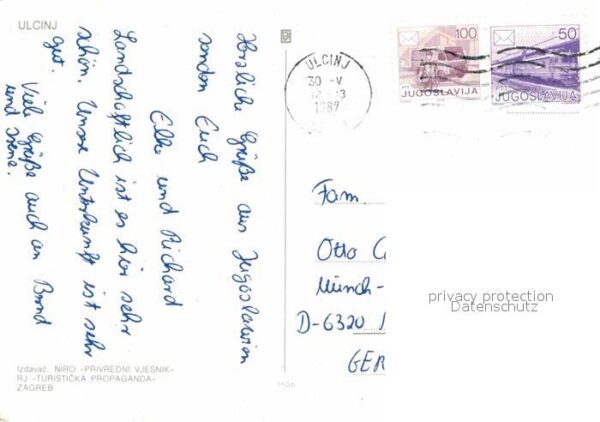 ULCINJ
Herzliche Grüße aus Jugoslawien
senden Euch
Elke und Richard
Landschaftlich ist es hier sehr
schön. Unsere Unterkunft ist sehr
gut.
Viele Grüße auch an Bernd
und Irene.
Izdavač: NIRO -PRIVREDNI VJESNIK-
RJ -TURISTIČKA PROPAGANDA-
ZAGREB
ULCINJ
30 -V
12-13
100
JUGOSLAVIJA
50
JUGOSLAVIJA
Fam.
Otto
Münch-
D-6320
GER
privacy protection
Datenschutz